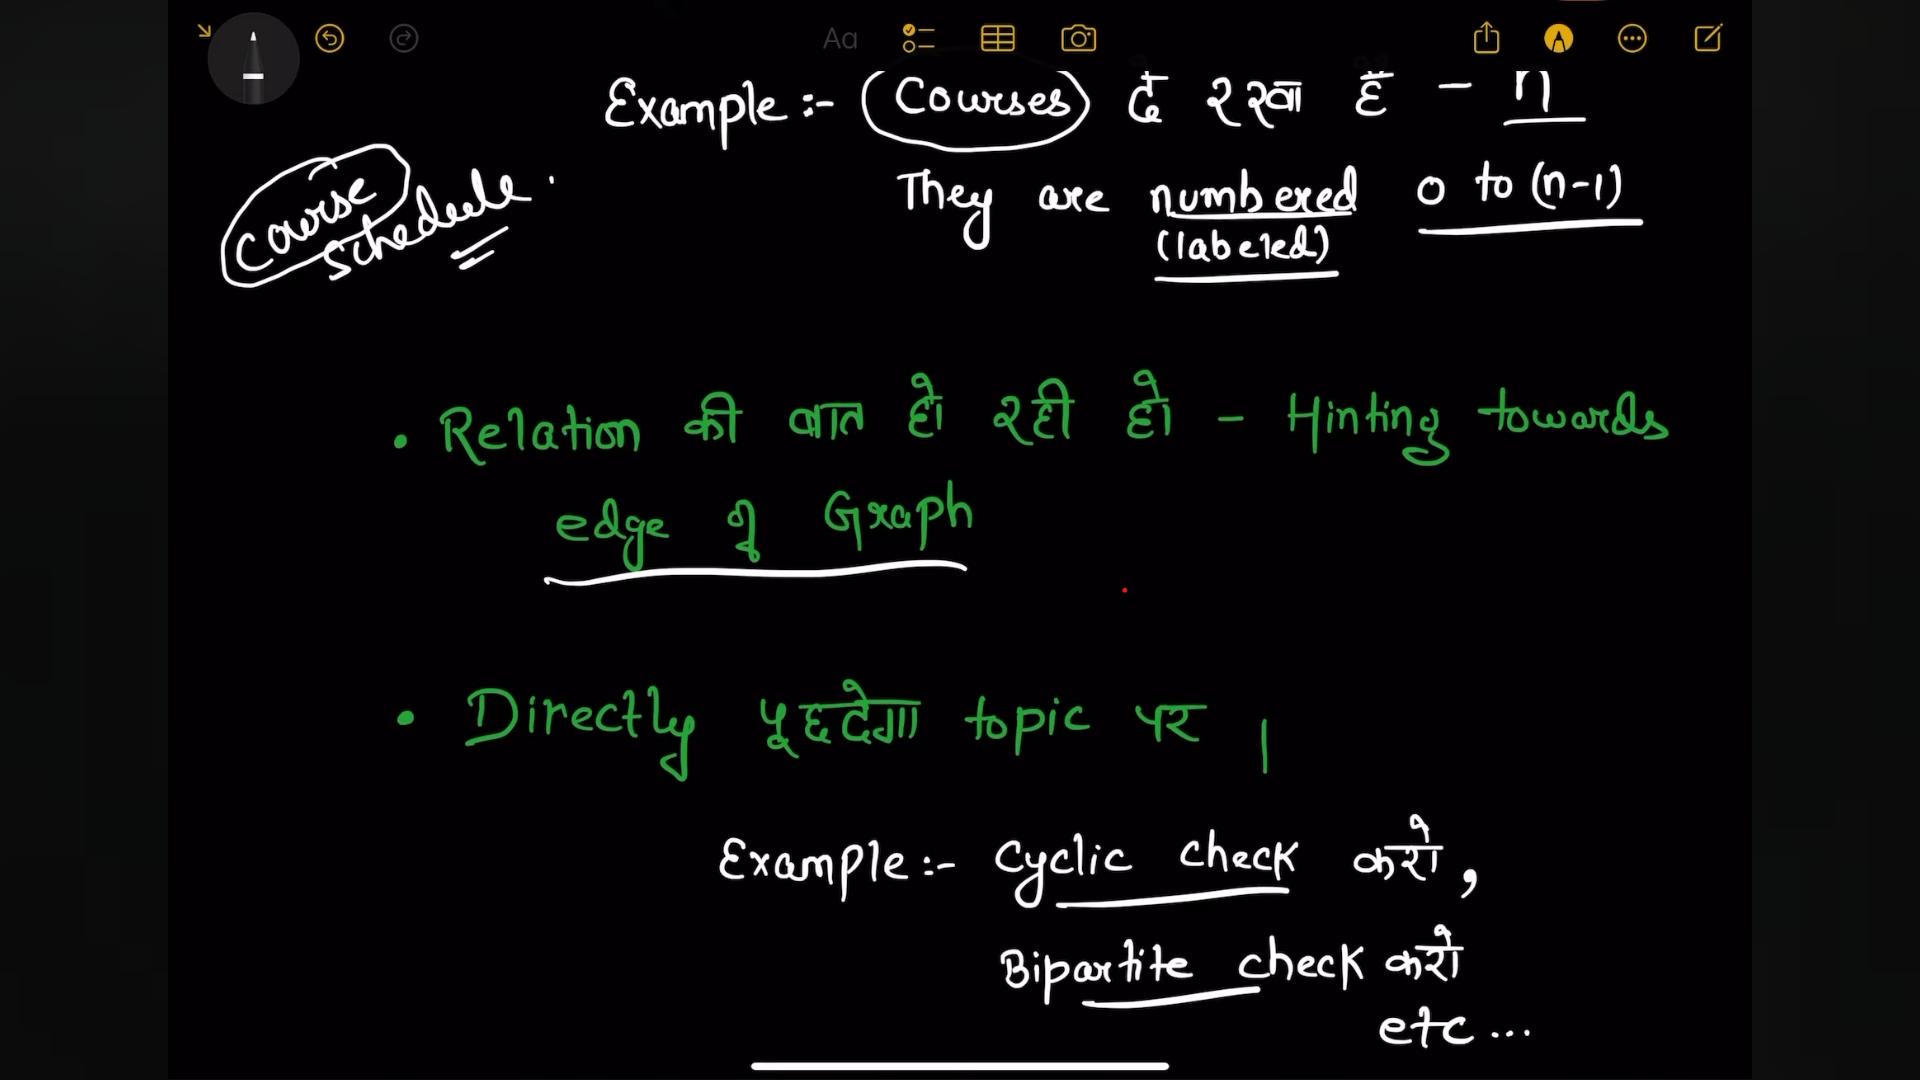 Aa
Example :- (Courses) दे रखा है - n
Course
Schedule.
They are numbered 0 to (n-1)
(labeled)
• Relation की बात हो रही हो - Hinting towards
edge of Graph
• Directly पूछ देगा topic पर |
Example :- Cyclic check करो,
Bipartite check करो
etc ...